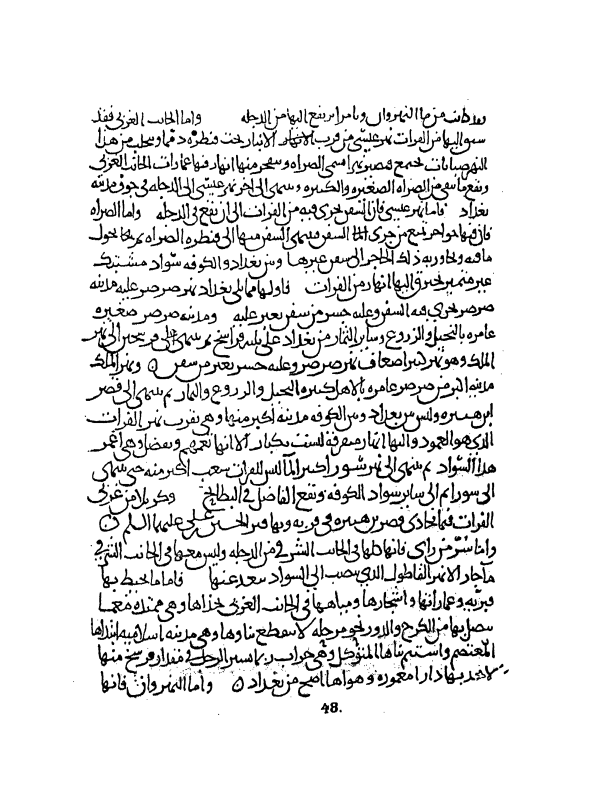 من ما النهروان وتامرا يرتفع اليها من الدجله واما الجانب الغربى فقد
اليها من الفرات نهر عيسى من قرب الانبار تحت قنطره دمما ويتحلب من هذا
النهر صبابات تجتمع فتصير نهرا يسمى الصراه ويتفجر منها انهار فيها عمارات الجانب الغربى
ويقع ما يبقى من الصراه الصغيره والكبيره وينتهى الى اخر نهر عيسى الى الدجله فى جوف مدينه
بغداد فاما نهر عيسى فان السفن تجرى فيه من الفرات الى ان تقع فى الدجله واما الصراه
فان فيها حواجز تمنع من جرى السفن فتنتهى السفن منها الى قنطره الصراه ثم يحول
ما فيه ويجاوز به ذلك الحاجز الى سفن غيرها وبين بغداد والكوفه سواد مشتبك
غير متميز تخترق اليها انهار من الفرات فاولها مما يلى بغداد نهر صرصر عليه مدينه
صرصر وتجرى فيه السفن وعليه جسر من سفن يعبر عليه ومدينه صرصر صغيره
عامره بالنخيل والزروع وساير الثمار من بغداد على ثلثه فراسخ ثم ينتهى على فرسخين الى نهر
الملك وهو نهر كبير اضعاف نهر صرصر وعليه جسر يعبر من سفن ونهر الملك
مدينه اكبر من صرصر عامره بالاهل كثيره النخيل والزروع والثمار ثم ينتهى الى قصر
ابن هبيره وليس بين بغداد وبين الكوفه مدينه اكبر منها وهى بقرب نهر الفرات
الذى هو العمود واليها انهار متفرقه ليست بكبار الا انها تعمهم وتفضل وهى اعمر
هذا السواد ثم ينتهى الى نهر سورا كبير الما ليس للفرات شعب اكبر منه حتى ينتهى
الى سورا ثم الى ساير سواد الكوفه ويقع الفاضل فى البطايح وكربلا من غربى
الفرات فيما يحاذى قصر بن هبيره فى قريه وبها قبر الحسين بن على عليهما السلم
واما سر من راى فانها كلها فى الجانب الشرقى من الدجله وليس معها فى الجانب الشرقى
ما جار الا نهر القاطول الذى يصب الى السواد ببعد عنها فاما ما يحيط بها
فبريه وعماراتها واشجارها ومياهها فى الجانب الغربى بحذاها وهى ممتده معما
يتصل بها من الكرخ والدور نحو مرحله لا ينقطع بناوها وهى مدينه اسلاميه ابتداها
المعتصم واستتم بناها المتوكل وهى خراب ربما يسير الرجل فى مقدار فرسخ منها
لا يجد بها دارا معموره وهواها اصح من بغداد واما النهروان فانها
48.